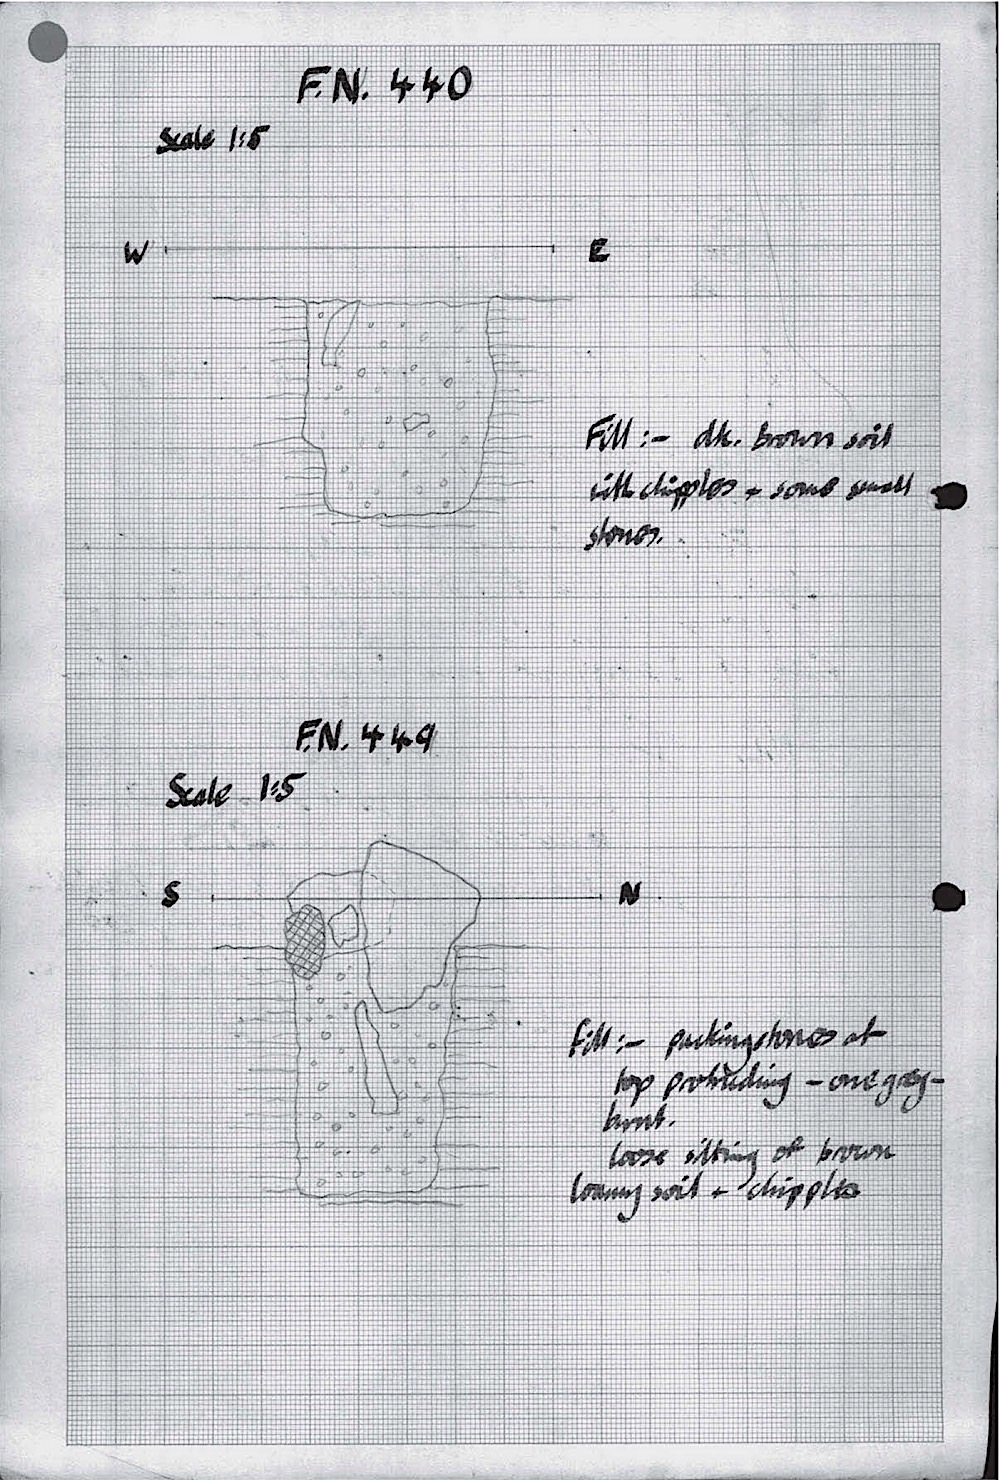 F.N. 440
Scale 1:5
W E
Fill :- dk. brown soil
with chipples + some small
stones.
F.N. 449
Scale 1:5
S N
Fill :- packing stones at
top protruding - one grey-
burnt.
loose silting of brown
loamy soil + chipples